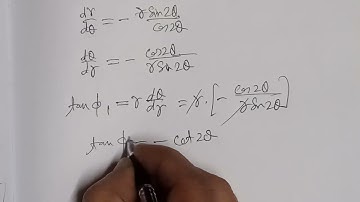 dr/dθ = - r Sin2θ/Cos2θ
dθ/dr = - Cos2θ/rSin2θ
tan ϕ₁ = r dθ/dr = r. [- Cos2θ/rSin2θ]
tan ϕ - cot 2θ